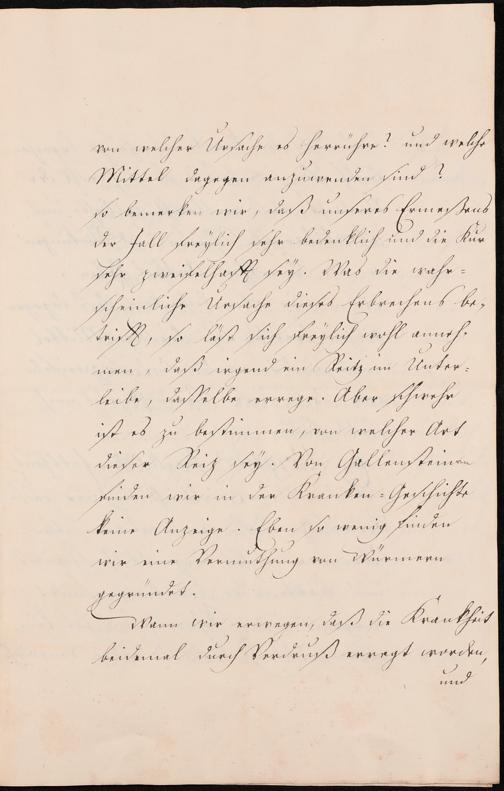 von welcher Ursache es herrühre? und welche
Mittel dagegen anzuwenden sind?
so bemerken wir, daß unseres Ermeßens
der Fall freylich sehr bedenklich und die Kur
sehr zweifelhafft sey. Was die wahr-
scheinliche Ursache dieses Erbrechens be-
trifft, so läßt sich freylich wohl anneh-
men, daß irgend ein Reitz im Unter-
leibe, dasselbe errege. Aber schwehr
ist es zu bestimmen, von welcher Art
dieser Reiz sey. Von Gallensteinen
finden wir in der Kranken-Geschichte
keine Anzeige. Eben so wenig finden
wir eine Vermuthung von Würmern
gegründet.
Wann wir erwegen, daß die Krankheit
beidemal durch Verdruß erregt worden,
und